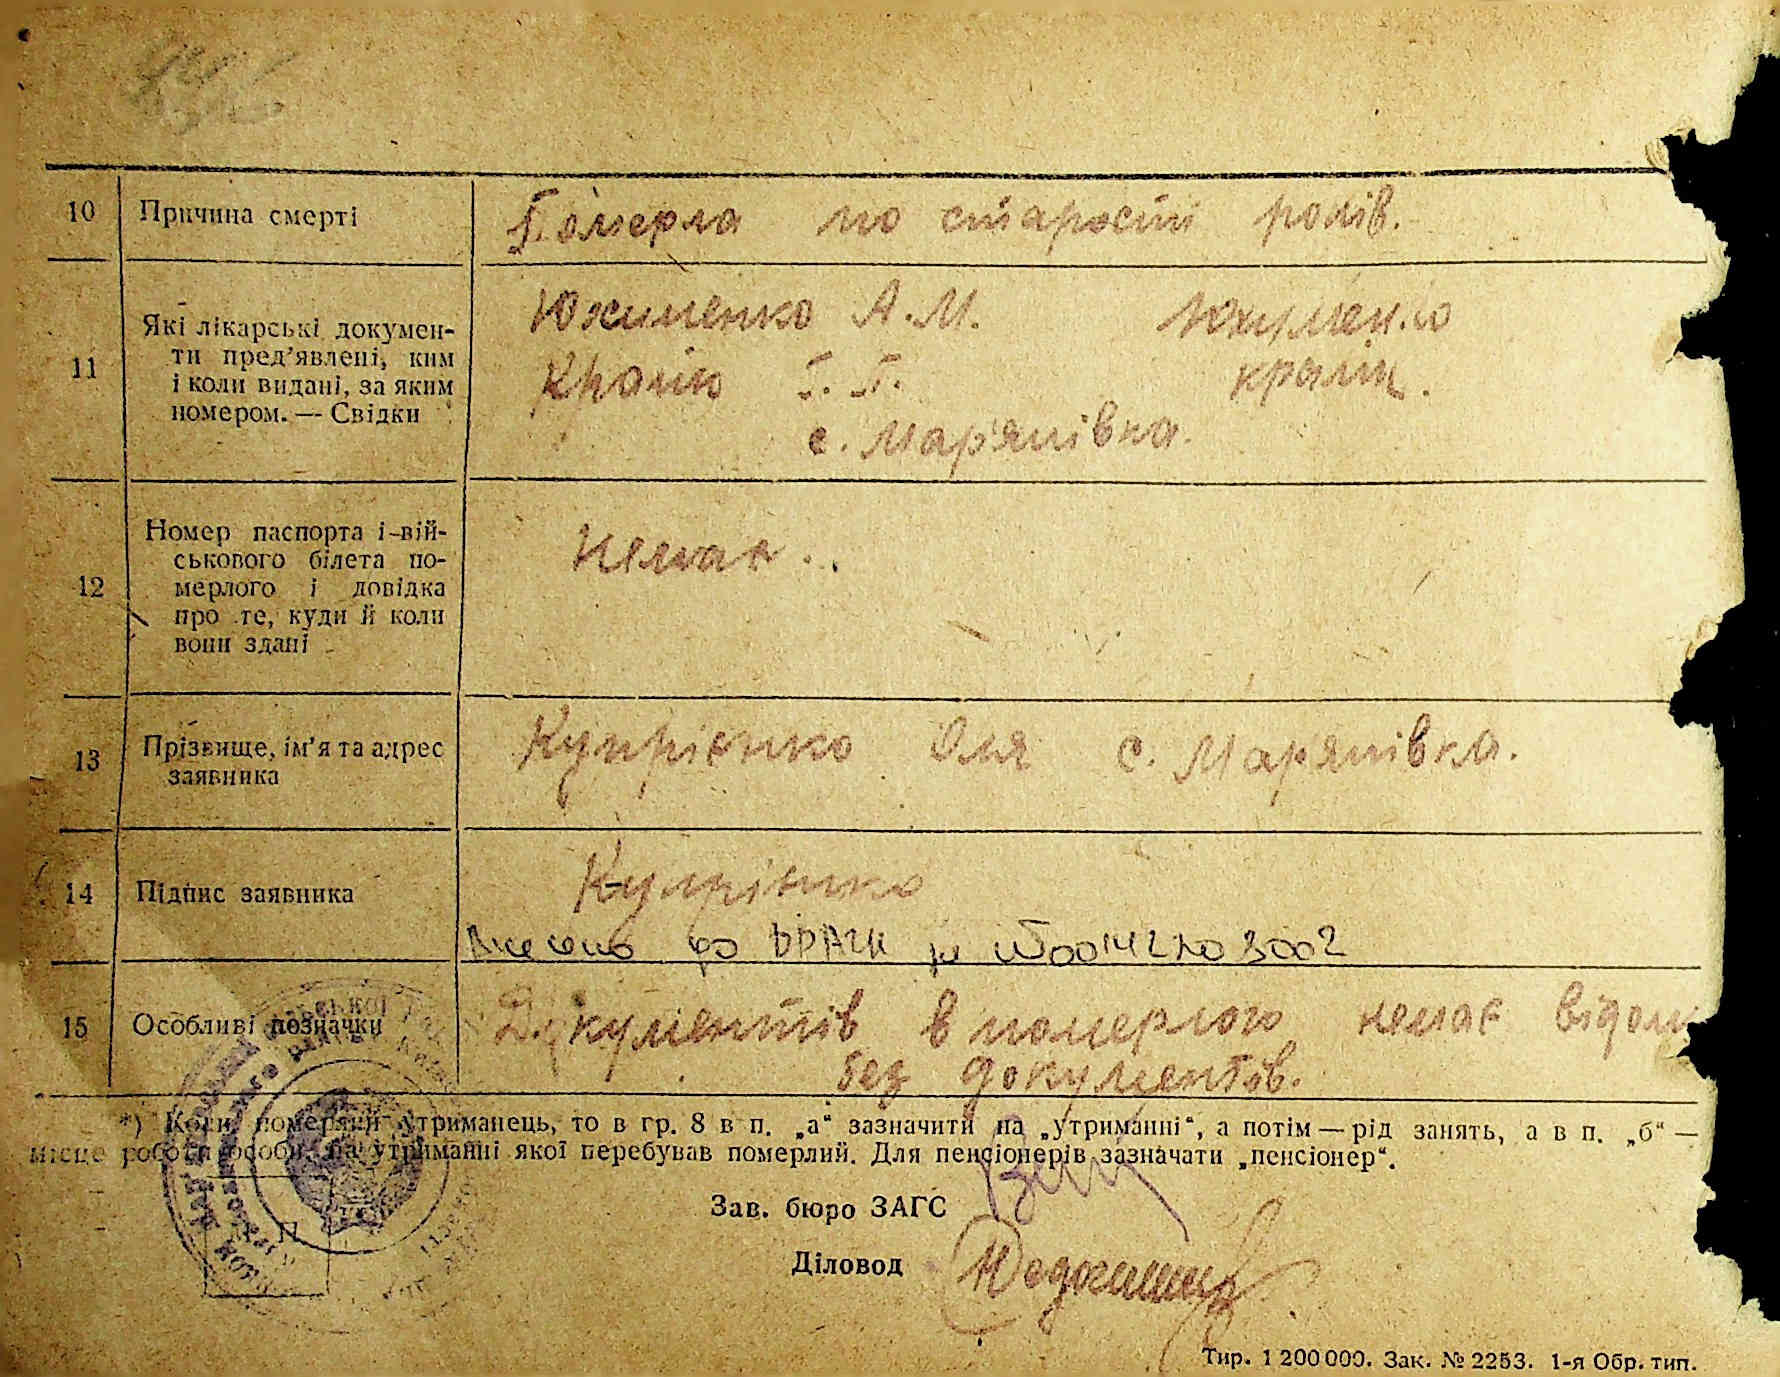 10 Причина смерті Померла по старости років.
11 Які лікарські докумен-
ти пред’явлені, ким
і коли видані, за яким
номером. — Свідки
Юхименко А.М. Юхименко
Кролік Г. Г.
с. Мар'янівка.
12 Номер паспорта і вій-
ськового білета по-
мерлого і довідка
про те, куди й коли
вони здані
Немає.
13 Прізвище, ім’я та адрес
заявника
Купрієнко Оля с. Мар'янівка.
14 Підпис заявника Купрієнко
Внесено до ДРАЦС №
15 Особливі позначки Документів в померлого немає
без документів.
*) Коли померлий утриманець, то в гр. 8 в п. „а“ зазначити на „утриманні“, а потім — рід занять, а в п. „б“ —
місце роботи особи, на утриманні якої перебував померлий. Для пенсіонерів зазначати „пенсіонер“.
Зав. бюро ЗАГС
Діловод
М. П.
Тир. 1 200 000. Зак. № 2253. 1-я Обр. тип.